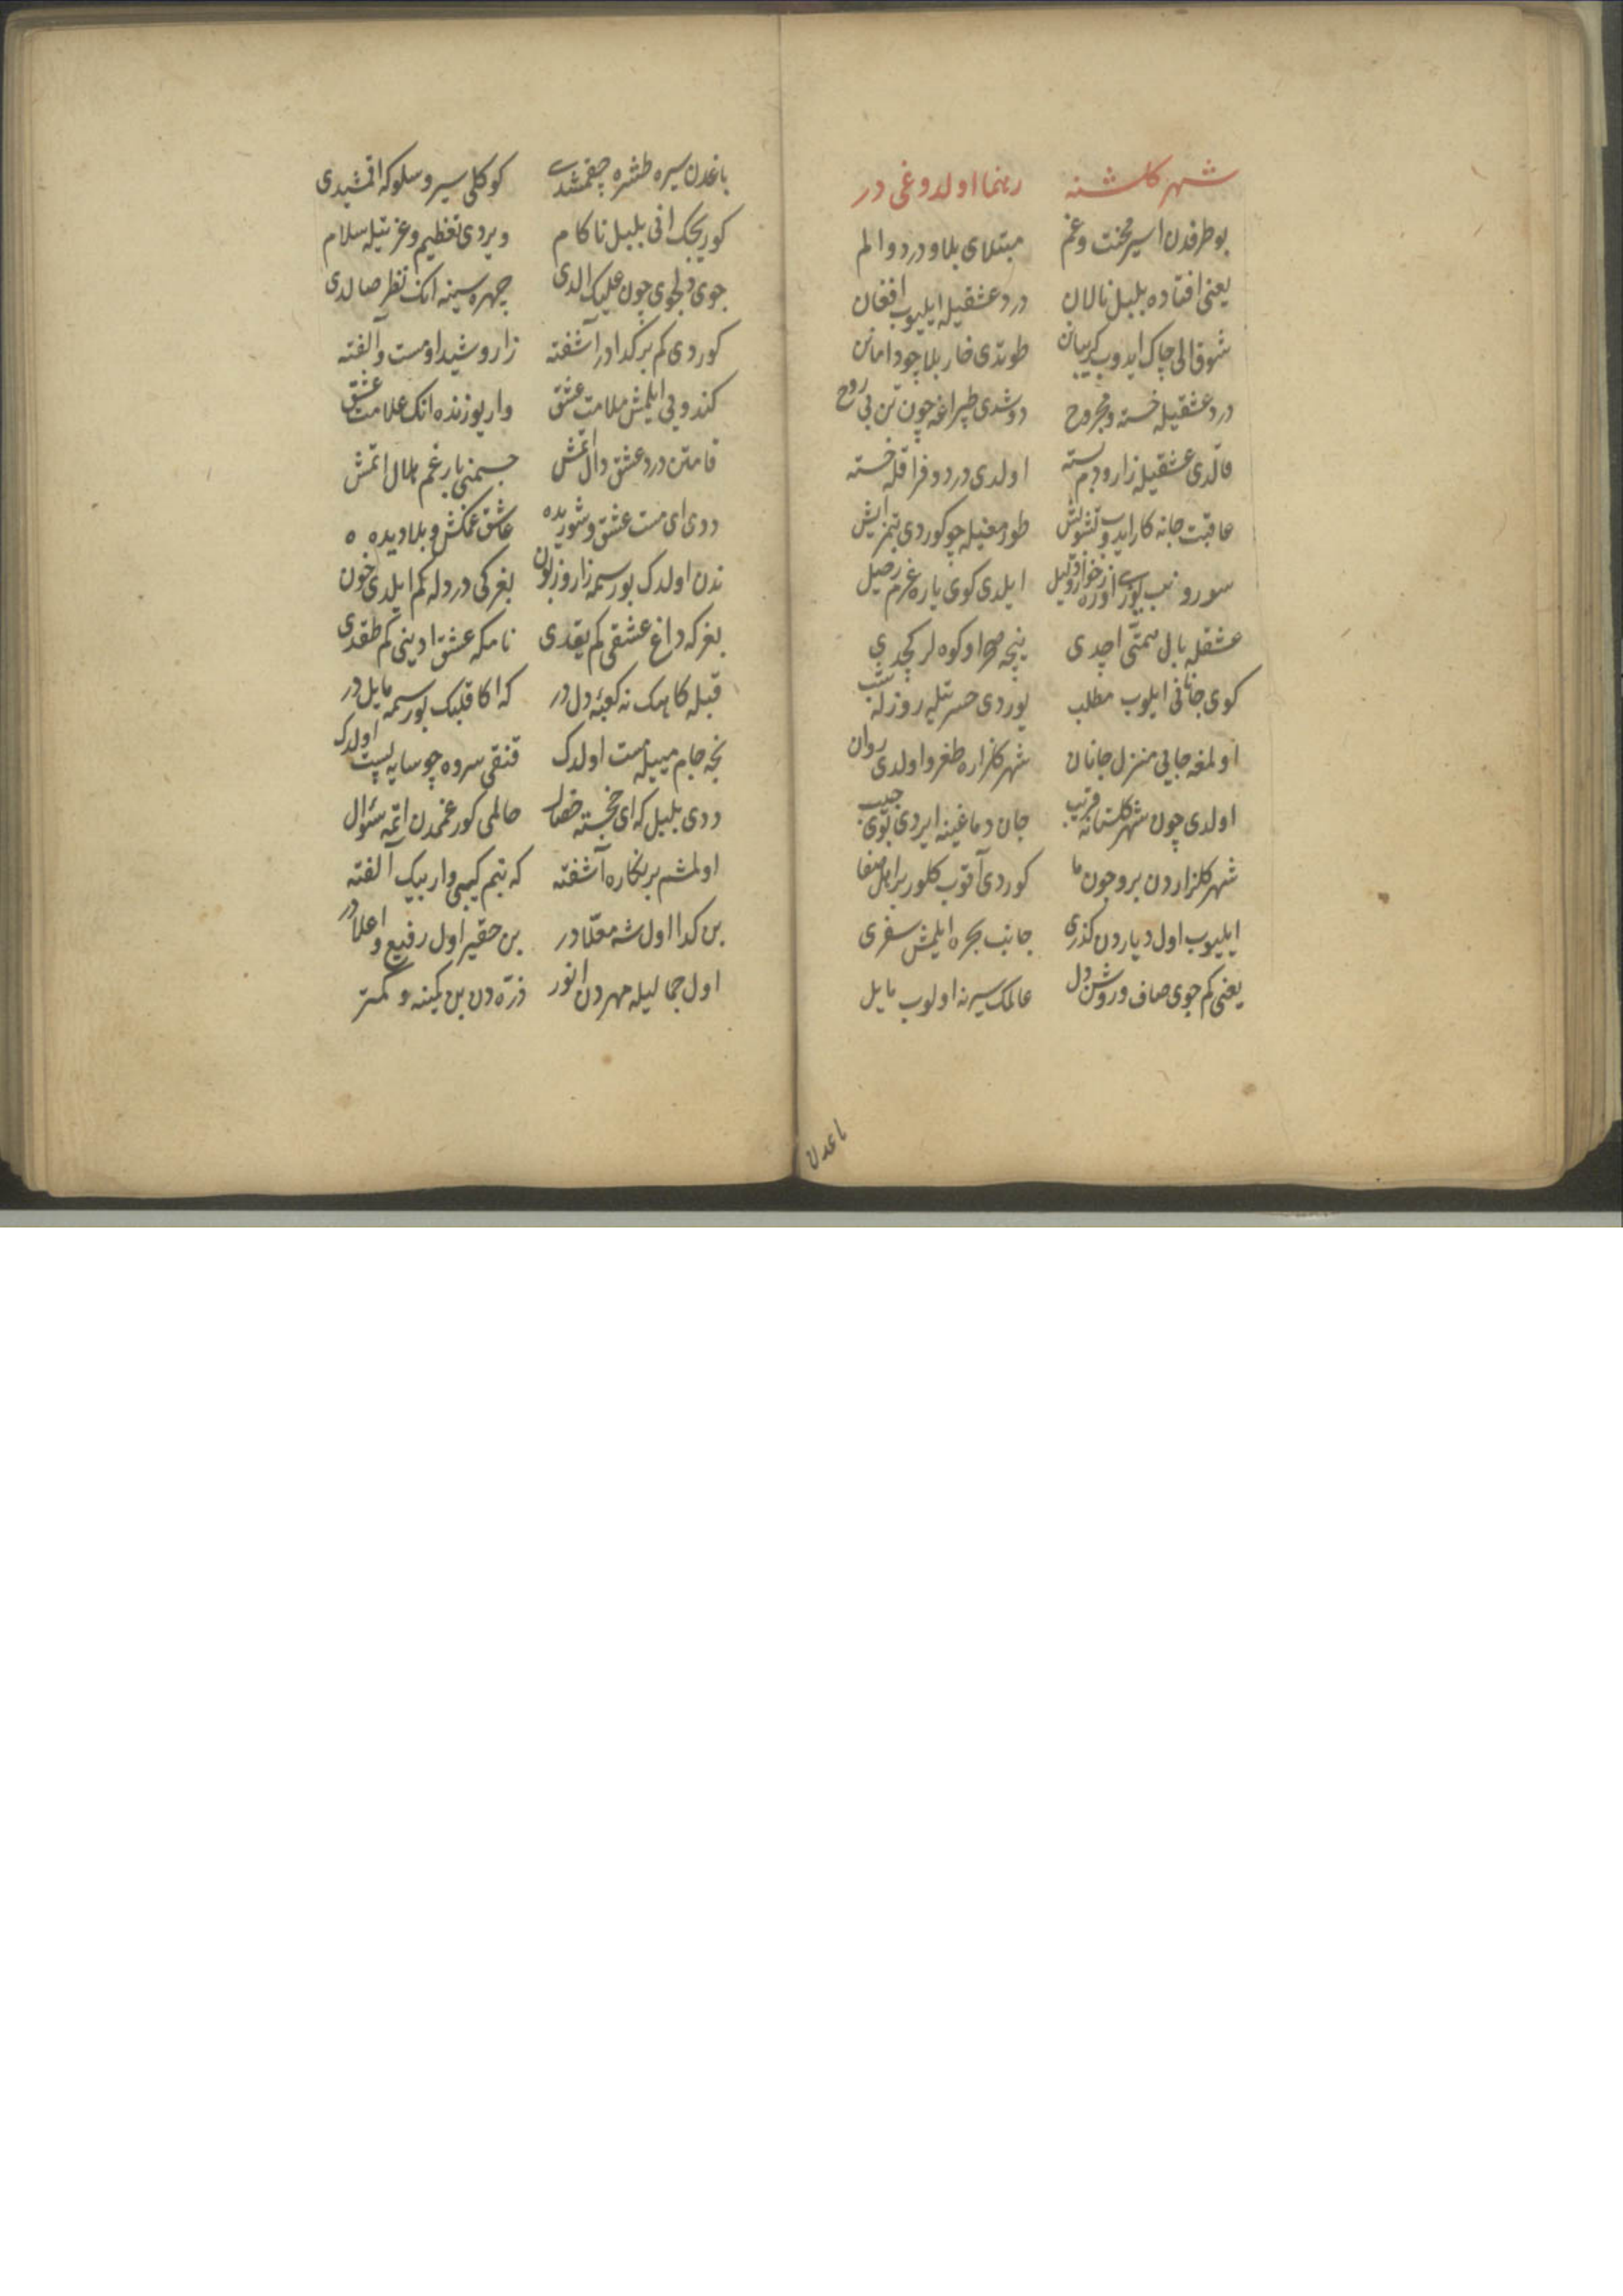 شهر گلشنه رهنما اولدوغی در
بو طرفدن اسیر محنت و غم مبتلای بلا و درد و الم
یعنی افتاده بلبل نالان درد عشقیله ایلیوب افغان
شوق الی چاک ایدوب کریبانن طوتدی خار بلا چو دامانن
درد عشقیله خسته و مجروح دوشدی طپراغه چون تن بی روح
قالدی عشقیله زار و دم بسته اولدی درد و فراقله خسته
عاقبت جانه کار ایدوب تشویش طورمغیله چو کوردی بتمز ایش
سورونب یوزی اوزره خوار و ذلیل ایلدی کوی یاره عزم رحیل
عشقله بال همتی اچدی نیچه صحرا و کوه لر کچدی
کوی جانانی ایلیوب مطلب یوردی حسرتله روزله شب
اولمغه جایی منزل جانان شهر کلزاره طغرو اولدی روان
اولدی چون شهر کلستانه قریب جان دماغینه ایردی بوی حبیب
شهر کلزاردن برو جون ما کوردی آقوب کلور بر اهل صفا
ایلیوب اول دیاردن کذری جانب بحره ایلمش سفری
یعنی کم جوی صاف و روشن دل عالمک سیرنه اولوب مایل
باغدن
باغدن سیره طشره چقمشدی کوکلی سیر و سلوکه اقمشیدی
کوریجک انی بلبل ناکام ویردی تعظیم و عزتیله سلام
جوی دلجوی چون علیک الدی چهره سینه انک نظر صالدی
کوردی کم بر کدادر آشفته زار و شیدا و مست و آلفته
کندویی ایلمش ملامت عشق وار یوزنده انک علامت عشق
قامتن درد عشق دال اتمش جسمنی بار غم هلال اتمش
ددی ای مست عشق و شوریده عاشق غمکش و بلا دیده
ندن اولدک بو رسمه زار و زبون بغرکی درد له کم ایلدی خون
بغرکه داغ عشقی کم یقدی نامکه عشق ادینی کم طقدی
قبله کاهک نه کعبهٔ دل در که اکا قلبک بو رسمه مایل در
نجه جام مییله مست اولدک قنقی سروه چو سایه پست اولدک
ددی بلبل که ای خجسته خصال حالمی کور غممدن اتمه سئوال
اولمشم بر نکاره آشفته که بنم کیبی وار بیک آلفته
بن کدا اول شه معلّا در بن حقیر اول رفیع و اعلا در
اول جمالیله مهردن انور ذرّه دن بن کمینه و کمتر